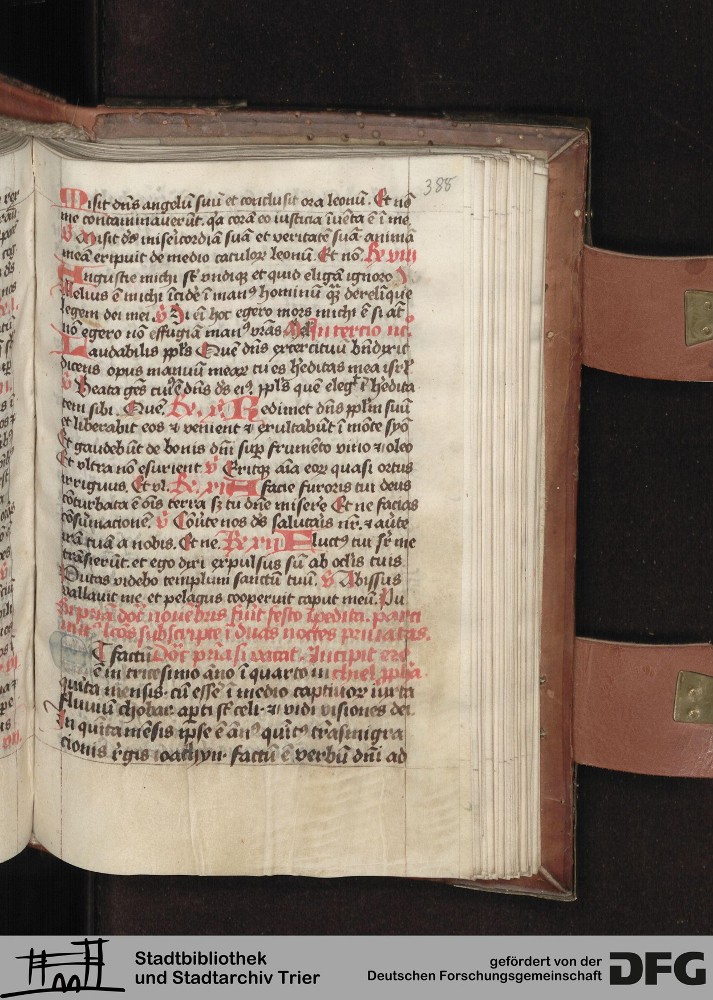 388
Misit dn̄s angelū suū et conclusit ora leonū. Et nō
me contaminaverūt. q̄a corā eo iusticia īvēta ē ī me
V̄ Misit ds̄ misēicordiā suā et veritatē suā. animā
meā eripuit de medio catulor̄ leonū. Et nō. Re. viii
Angustie michi st̄ vndiqꝫ et quid eligā ignoro
Melius ē michi īcidē ī man⁹ hominū q̄ꝫ derelīque
legem dei mei. V̄ Si eī hoc egero mors michi ē si aūt
nō egero nō effugiā man⁹ vr̄as. Mel. In tercio nc̄.
Laudabilis ppl̄s Quē dn̄s exercituū bn̄dixit
dicens opus manuū mear̄ tu es h̓editas mea isrl̄
V̄ Beata gēs cui⁹ ē dn̄s ds̄ ei⁹ ppl̄s quē elegͭ ī h̓edita
tem sibi. Quē. Re. x. Redimet dn̄s pplm̄ suū
et liberabit eos ⁊ venient ⁊ exultabūt ī mōte syō
Et gaudebūt de bonis dn̄i sup̄ frumēto vino ⁊ oleo
Et vltra nō esurient. V̄ Eritqꝫ aīa eor̄ quasi ortus
irriguus. Et vl. Re. xi A facie furoris tui deus
cōturbata ē oīs terra sꝫ tu dn̄e misere Et ne facias
cōsūmationē. V̄ Cōūte nos ds̄ salutaīs nr̄. ⁊ aūte
irā tuā a nobis. Et ne. Re xii Fluct⁹ tui sr̄ me
trāsierūt. et ego dixi expulsus sū ab oclīs tuis
Putas videbo templum sanctū tuū. V̄ Abissus
vallavit me et pelagus cooperuit caput meū. Pu
novēbris fiūt festo īpedita.
subscripte ī duas noctes privatas.
Et factū Dōc prīa si vacat. Incipit eze
ē in tricesimo āno ī quarto in chiel ppħa
quīta mensis. cū essē ī medio captivor̄ iuxta
fluviū chobar apti st̄ celi. ⁊ vidi visiones dei.
In quīta mēsis ip̄se ē ān⁹ quīt⁹ trāsmigra
cionis r̄gis ioachyn. factū ē verbū dn̄i ad
Stadtbibliothek
und Stadtarchiv Trier
gefördert von der
Deutschen Forschungsgemeinschaft
DFG